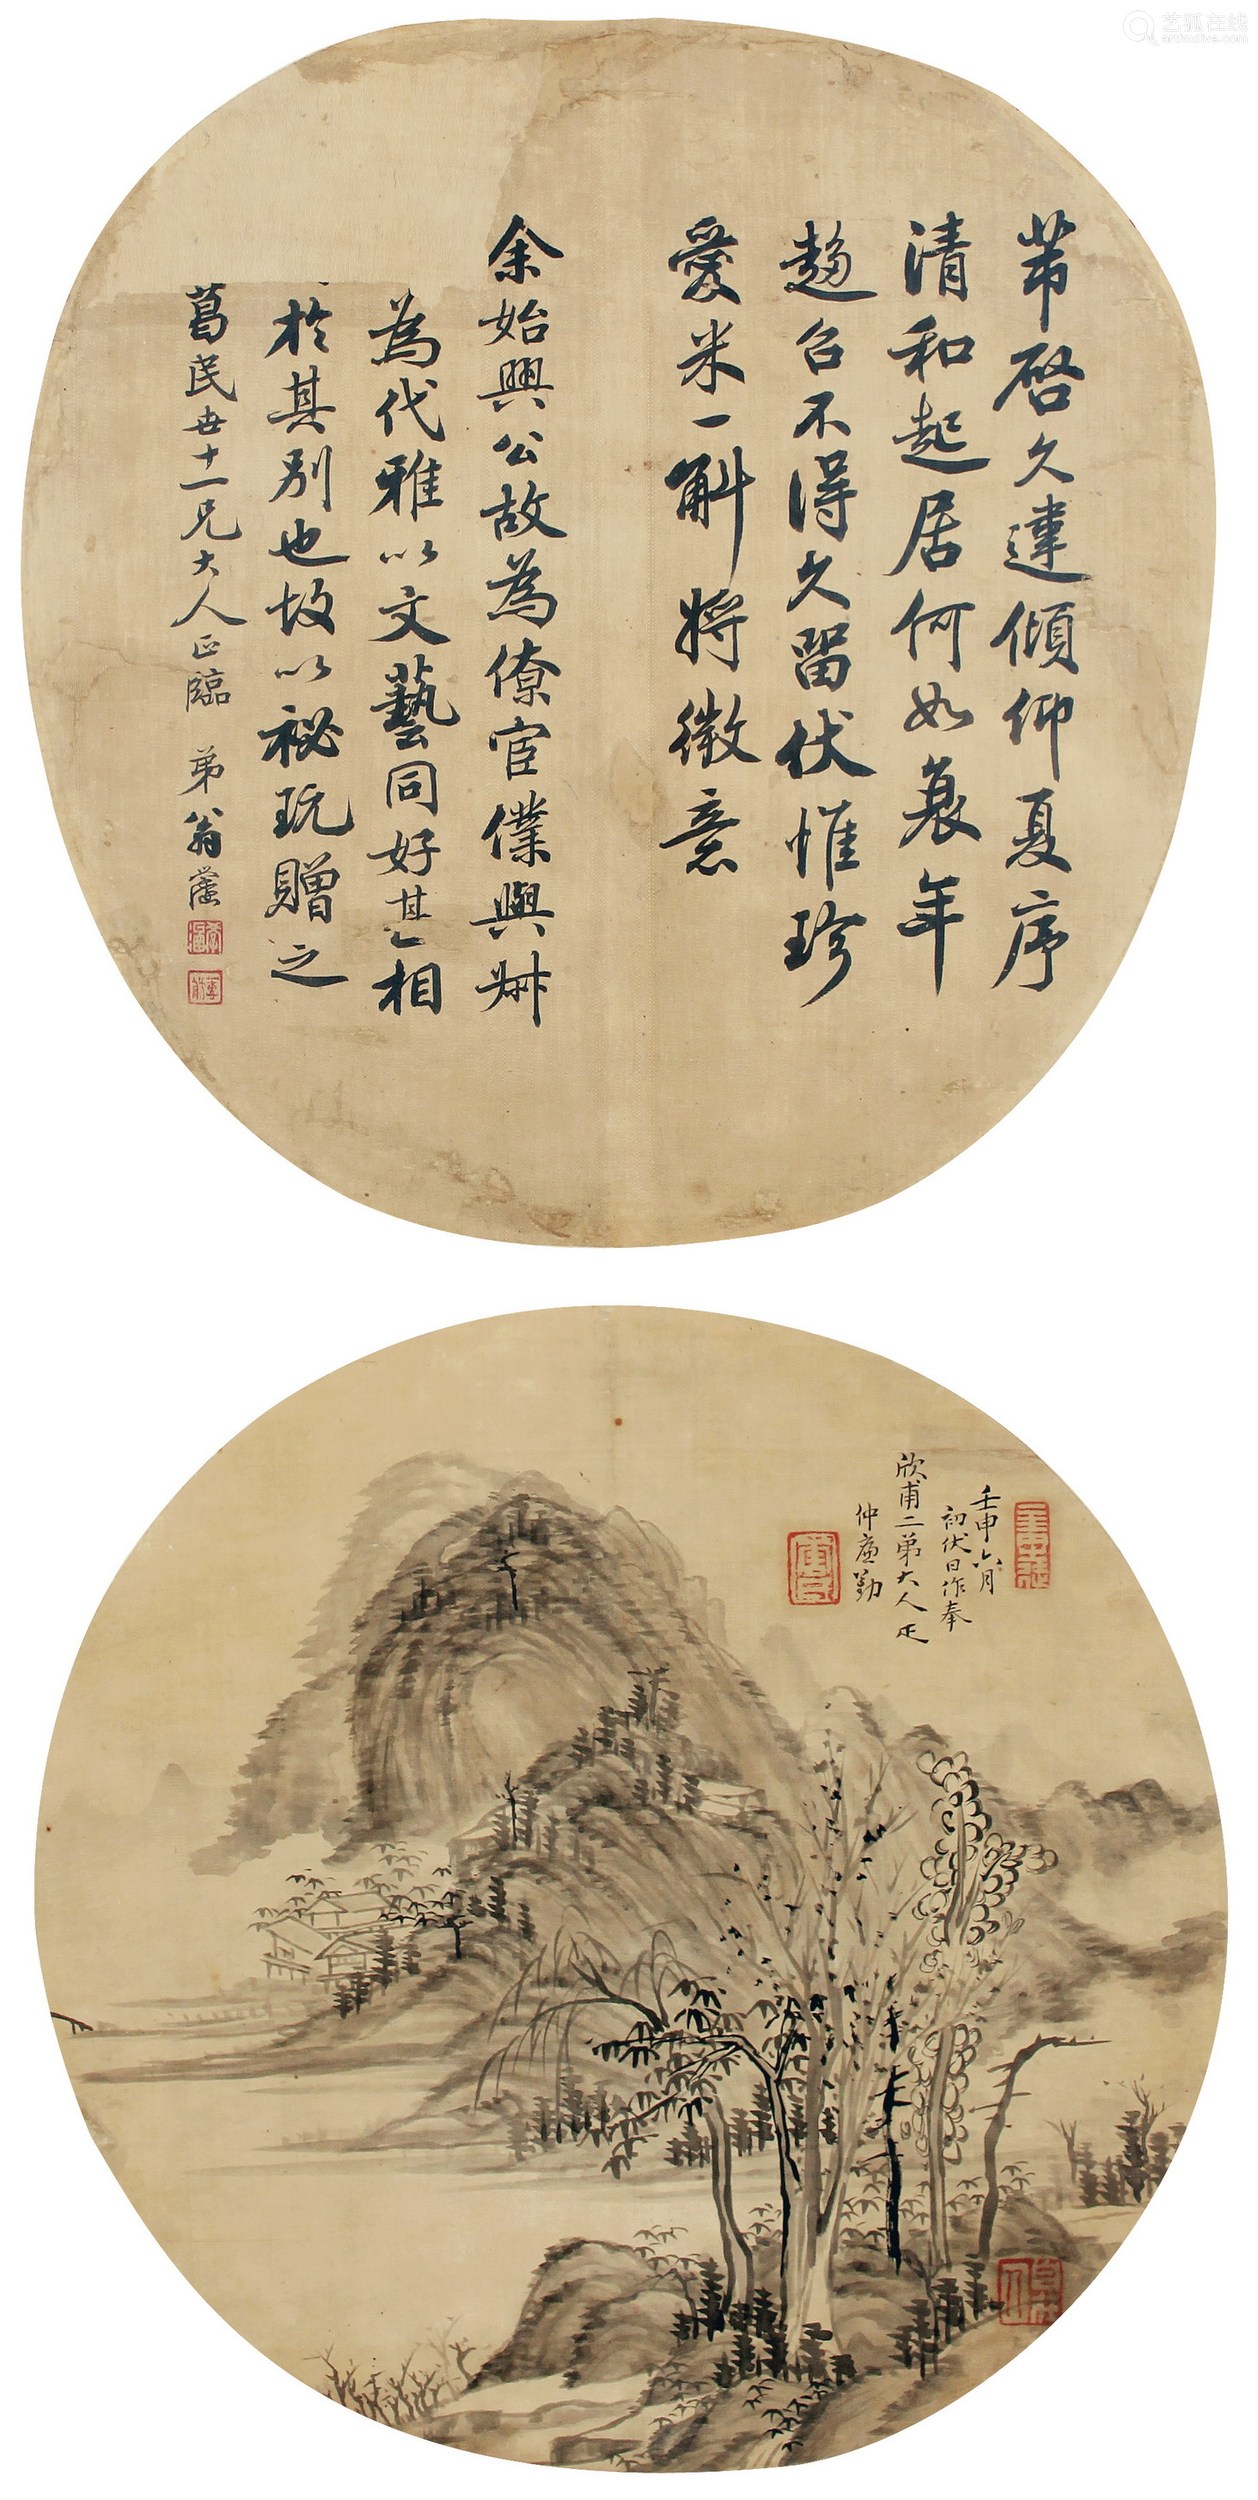 艺狐在线
artfoxlive.com
芾啓久違傾仰夏序
清和起居何如衰年
趨召不得久留伏惟珍
愛米一斛將微意
余始興公故為僚宦僕與叔
為代雅以文藝同好甚相
於其別也故以秘玩贈之
葛民世十一兄大人正臨 弟翁
壬申六月
初伏日作奉
欣甫二弟大人正
仲廉勤